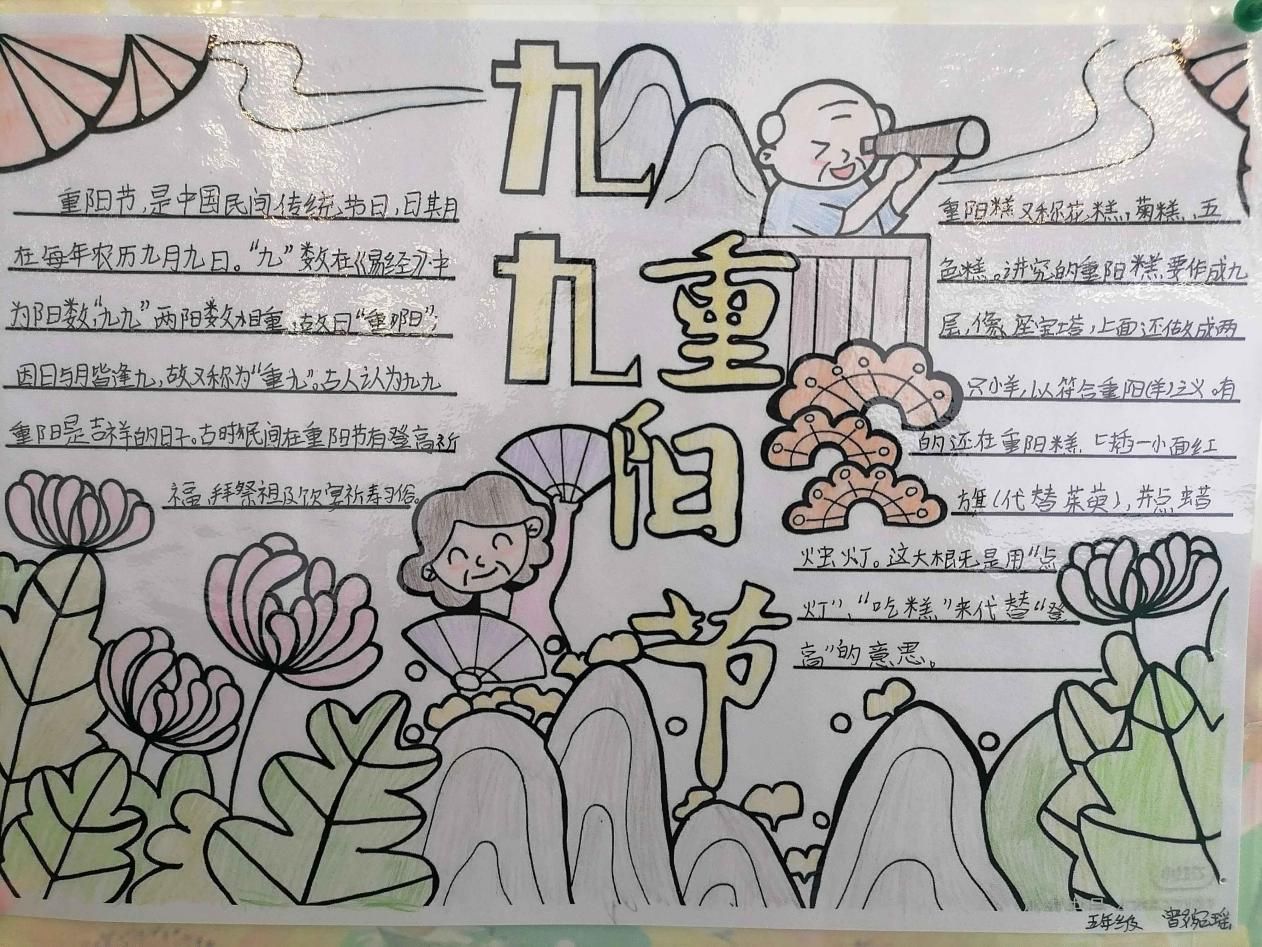 九
九重
阳
节
重阳节,是中国民间传统节日,日期
在每年农历九月九日。“九”数在《易经》中
为阳数,“九九”两阳数相重,故曰“重阳”;
因日与月皆逢九,故又称为“重九”。古人认为九九
重阳是吉祥的日子。古时民间在重阳节有登高祈
福,拜祭祖及饮宴祈寿习俗。
重阳糕又称花糕,菊糕,五
色糕。讲究的重阳糕要作成九
层,像座宝塔,上面还做成两
只小羊,以符合重阳(羊)之义。有
的还在重阳糕上插一小面红
旗(代替茱萸),并点蜡
烛灯。这大概是用“点
灯”,“吃糕”来代替“登
高”的意思。
五年级